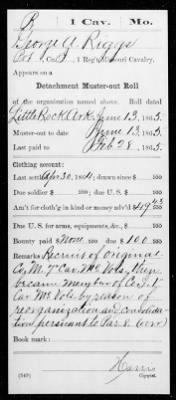 R | 1 Cav. | Mo.
George A. Riggs
Co. I, 1 Reg't Missouri Cavalry.
Appears on a
Detachment Muster-out Roll
of the organization named above. Roll dated
Little Rock Ark. June 13, 1865.
Muster-out to date June 13, 1865.
Last paid to Feb 28, 1865.
Clothing account:
Last settled Apr 30, 1864; drawn since $ 100
Due soldier $ 100; due U. S. $ 100
Am't for cloth'g in kind or money adv'd $ 49 45/100
Due U. S. for arms, equipments, &c., $ 100
Bounty paid $ None 100; due $ 100 100
Remarks: Recruit of original
Co. M. 7" Cav. Mo Vols. then
became member of Co. I. 1
Cav Mo Vols by reason of
reorganization and consolida-
tion pursuant to Par. 8. (over)
Book mark:
Harris
(340) Copyist.